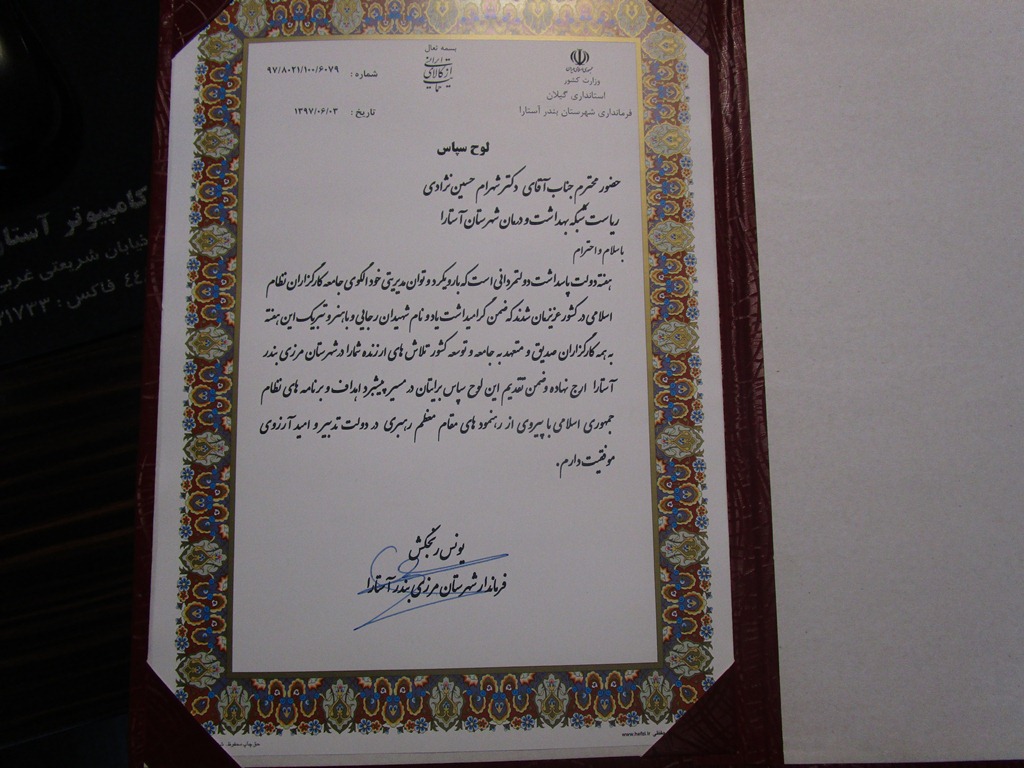 بسمه تعالی
جمهوری اسلامی ایران
وزارت کشور
استانداری گیلان
فرمانداری شهرستان بندر آستارا
حمایت از کالای ایرانی
شماره : ۹۷/۸۰۲۱/۱۰۰/۶۰۷۹
تاریخ : ۱۳۹۷/۰۶/۰۳
لوح سپاس
حضور محترم جناب آقای دکتر شهرام حسین نژادی
ریاست شبکه بهداشت و درمان شهرستان آستارا
با سلام و احترام
هفته دولت پاسداشت دولتمردانی است که با رویکرد و توان مدیریتی خود الگوی جامعه کارگزاران نظام
اسلامی در کشور عزیزمان شدند که ضمن گرامیداشت یاد و نام شهیدان رجایی و باهنر و تبریک این هفته
به همه کارگزاران صدیق و متعهد به جامعه و توسعه کشور تلاش های ارزنده شما را در شهرستان مرزی بندر
آستارا ارج نهاده و ضمن تقدیم این لوح سپاس برایتان در مسیر پیشبرد اهداف و برنامه های نظام
جمهوری اسلامی با پیروی از رهنمود های مقام معظم رهبری در دولت تدبیر و امید آرزوی
موفقیت دارم.
یونس رنجکش
فرماندار شهرستان مرزی بندر آستارا
حق چاپ محفوظ
www.hefaz.ir
کامپیوتر آستار
خیابان شریعتی غربی
۴۴ فاکس : ۲۱۷۳۳